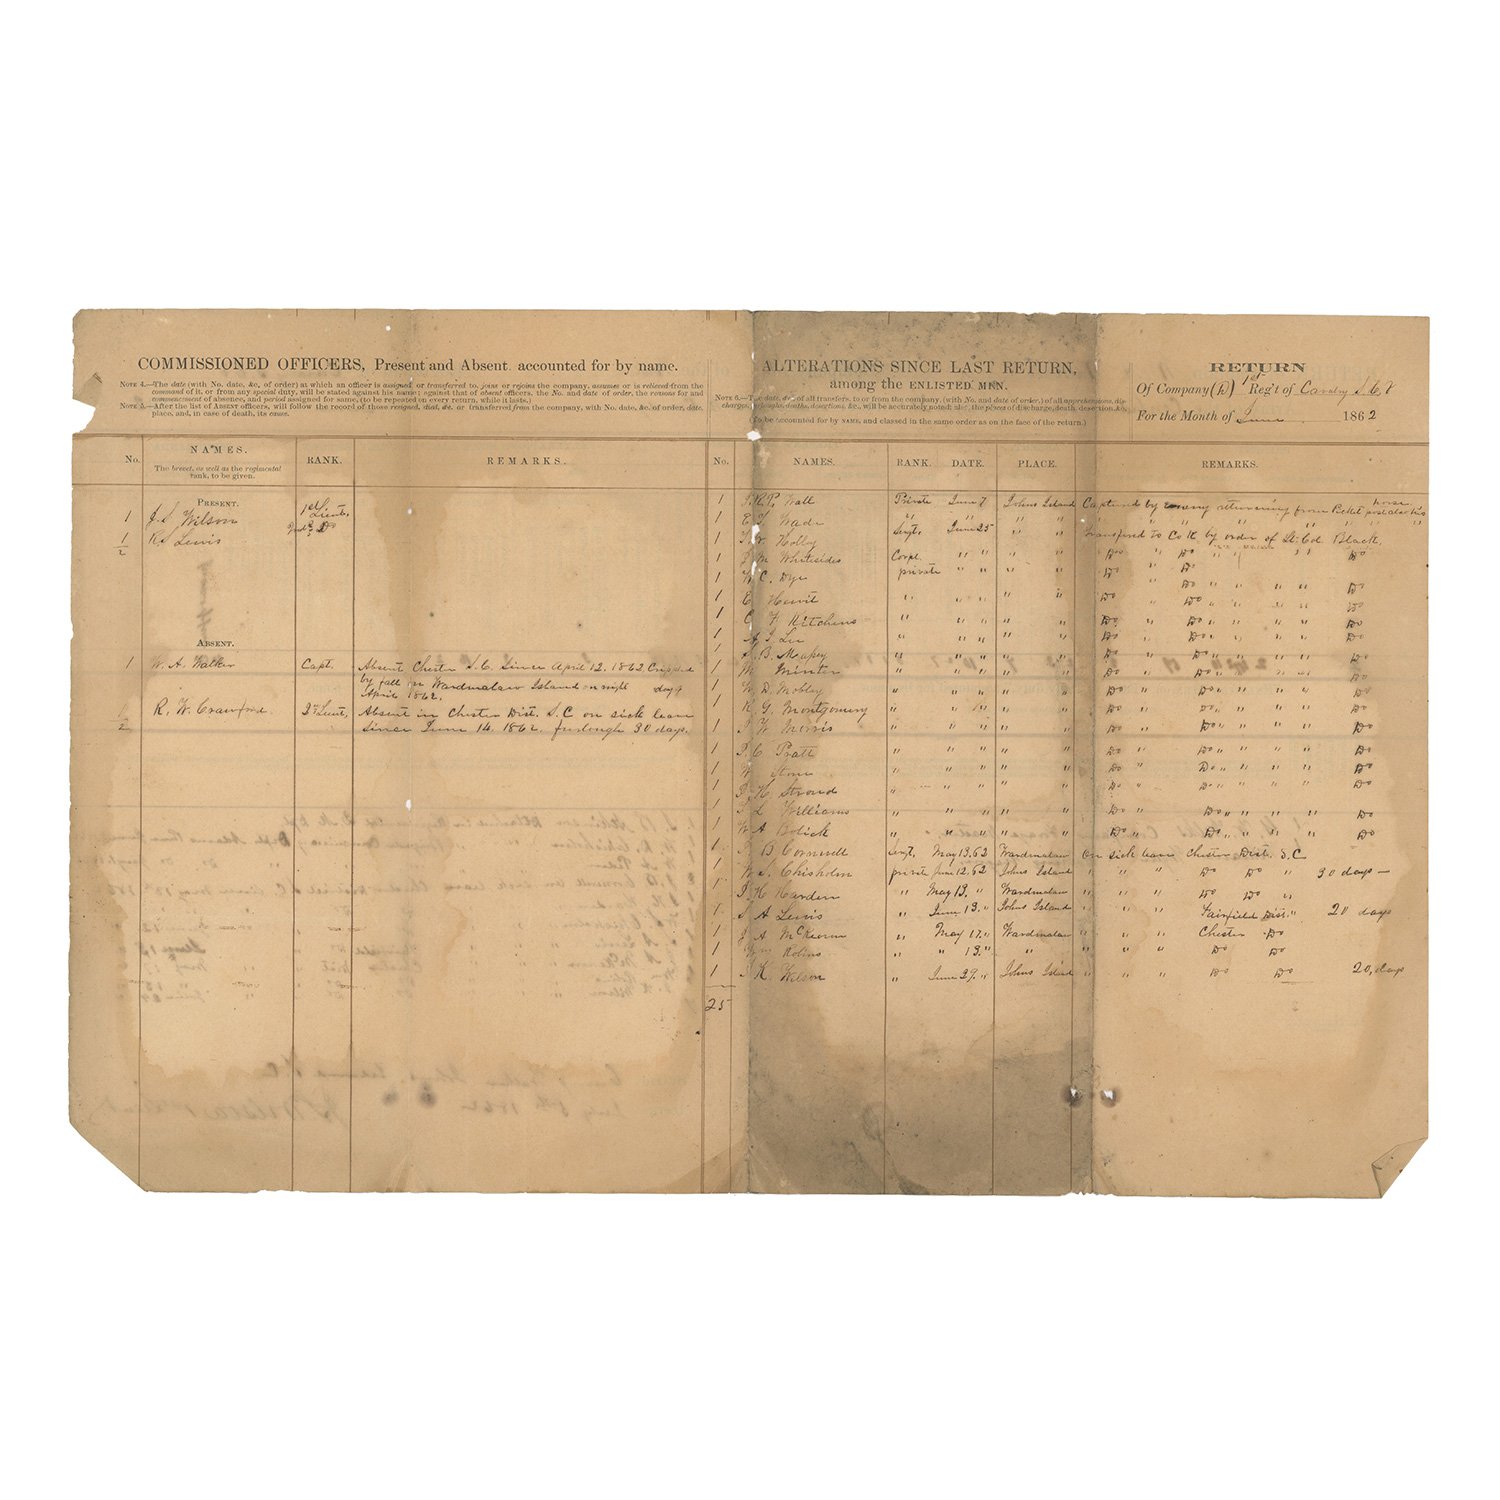 COMMISSIONED OFFICERS, Present and Absent accounted for by name.
NOTE 4.—The date (with No. date, &c. of order) at which an officer is assigned or transferred to, joins or rejoins the company, assumes or is relieved from the
command of it, or from any special duty, will be stated against his name; against that of absent officers, the No. and date of order, the reasons for and
commencement of absence, and period assigned for same, (to be repeated on every return, while it lasts.)
—After the list of ABSENT officers, will follow the record of those resigned, died, &c. or transferred from the company, with No. date, &c. of order, date,
place, and, in case of death, its cause.
No. NAMES. RANK. REMARKS.
The brevet, as well as the regimental
rank, to be given.
PRESENT.
1 J. S. Wilson 1st Lieut,
1 R. S. Lewis 2nd Do
2
ABSENT.
1 W. A. Walker Capt. Absent Chester S. C. Since April 12. 1862 Crippled
by fall on Wardmalaw Island on night day of
April 1862.
1 R. W. Crawford. 2nd Lieut, Absent in Chester Dist. S. C on sick leave
2 since June 14. 1862. furlough 30 days.
ALTERATIONS SINCE LAST RETURN,
among the ENLISTED MEN.
NOTE 6.—The date, &c. of all transfers, to or from the company, (with No. and date of order,) of all apprehensions, dis-
charges, furloughs, deaths, desertions, &c., will be accurately noted; also, the places of discharge, death, desertion, &c.
(To be accounted for by NAME, and classed in the same order as on the face of the return.)
RETURN
Of Company (D) 1st Reg't of Cavalry S. C. V
For the Month of June 1862
No. NAMES. RANK. DATE. PLACE. REMARKS.
1 Wall Private June 7 Johns Island Captured by enemy returning from Picket post also his horse
1 E. Wade " " " " " " " " " " " "
1 Holly Sergt. June 25 " " Transfered to Co K by order of Lt. Col Black.
1 J. M Whitesides Corpl " " " " Do " Do " " " " Do
1 W C. Dye private " " " " Do " Do
1 E Hewit " " " " " " Do " " " " Do
1 C F Kitchens " " " " " Do " Do " " " " Do
1 Lee " " " " " Do " Do " " " " Do
1 B. Mapey " " " " " Do " Do " " " " Do
1 Minter " " " " " Do " Do " " " " Do
1 W. D. Mobley " " " " " Do " Do " " " " Do
1 R G. Montgomery " " " " " Do " Do " " " " Do
1 W Morris " " " " " Do " Do " " " " Do
1 C Pratt " " " " " Do " Do " " " " Do
1 W Stone " " " " " Do " Do " " " " Do
1 H Stroud " " " " " Do " Do " " " " Do
1 L Williams " " " " " Do " Do " " " " Do
1 W A Bolick " " " " " Do " Do " " " " Do
1 B Cornwell Sergt. May 13, 62 Wardmalaw On sick leave Chester Dist. S. C
1 W. S. Chisholm private June 12, 62 Johns Island " " " Do Do " 30 days —
1 H Harden " May 13, " Wardmalaw " " " Do Do "
1 S A Lewis " June 13. " Johns Island " " " Fairfield Dist. " 20 days
1 J A McKeown " May 17. " Wardmalaw " " " Chester Do
1 Wm Robins " " 13. " " " " " Do Do
1 K. Wilson " June 29. " Johns Island " " " Do Do 20, days
25